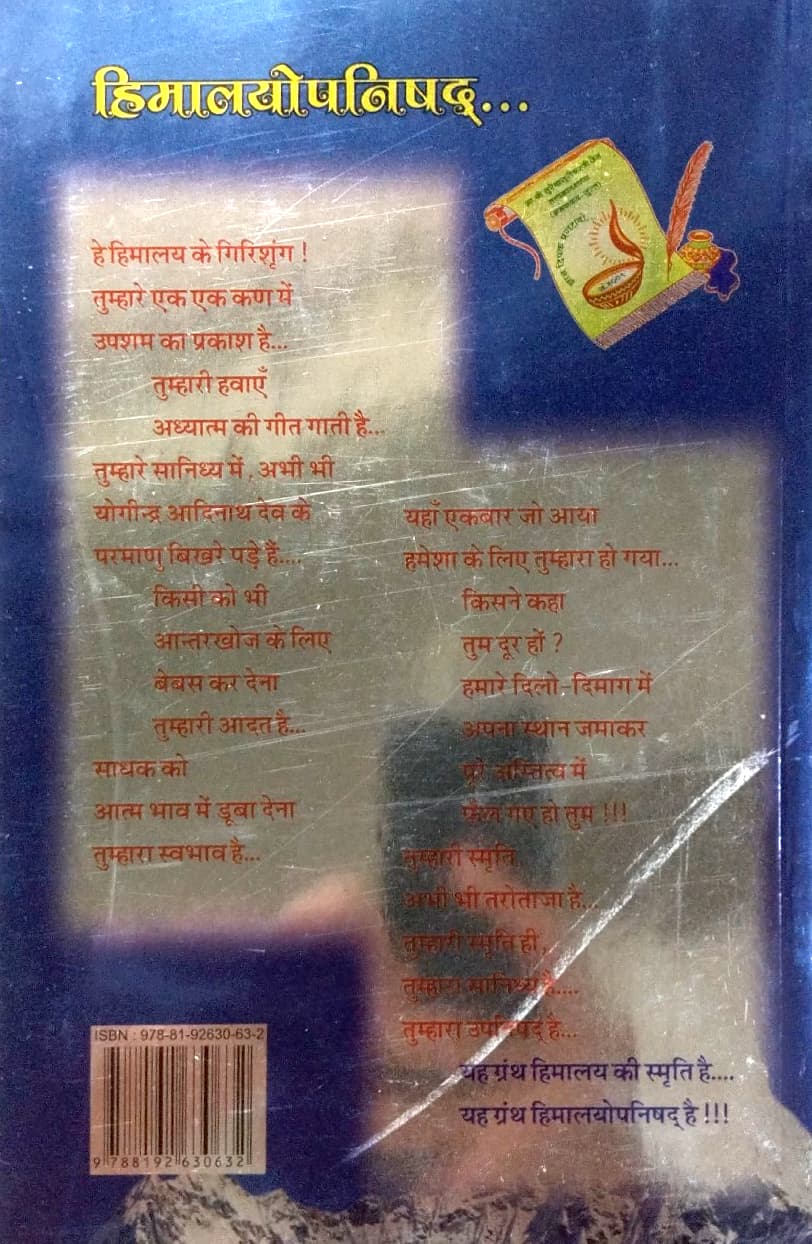 हिमालयोपनिषद्...
हे हिमालय के गिरिशृंग !
तुम्हारे एक एक कण में
उपशम का प्रकाश है...
तुम्हारी हवाएँ
अध्यात्म की गीत गाती है...
तुम्हारे सानिध्य में, अभी भी
योगीन्द्र आदिनाथ देव के
परमाणु बिखरे पड़े हैं....
किसी को भी
आन्तरखोज के लिए
बेबस कर देना
तुम्हारी आदत है...
साधक को
आत्म भाव में डूबा देना
तुम्हारा स्वभाव है...
यहाँ एकबार जो आया
हमेशा के लिए तुम्हारा हो गया...
किसने कहा
तुम दूर हों ?
हमारे दिलो-दिमाग में
अपना स्थान जमाकर
पूरे अस्तित्व में
फैल गए हो तुम !!!
तुम्हारी स्मृति
अभी भी तरोताजा है...
तुम्हारी स्मृति ही,
तुम्हारा सानिध्य है....
तुम्हारा उपनिषद् है...
यह ग्रंथ हिमालय की स्मृति है....
यह ग्रंथ हिमालयोपनिषद् है !!!
ISBN : 978-81-92630-63-2
9 788192 630632